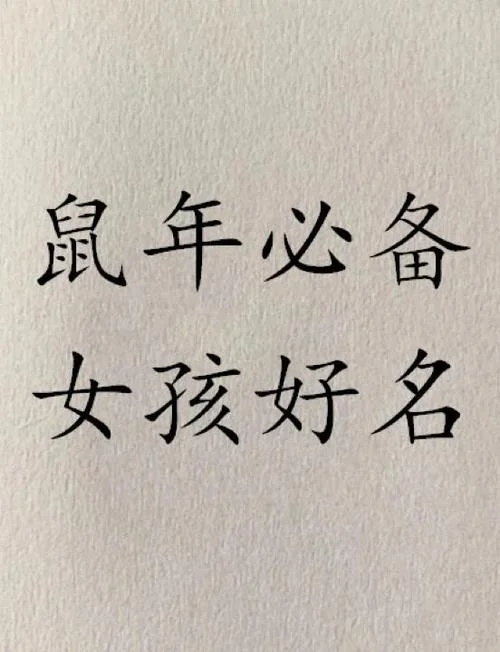 鼠年必备
女孩好名